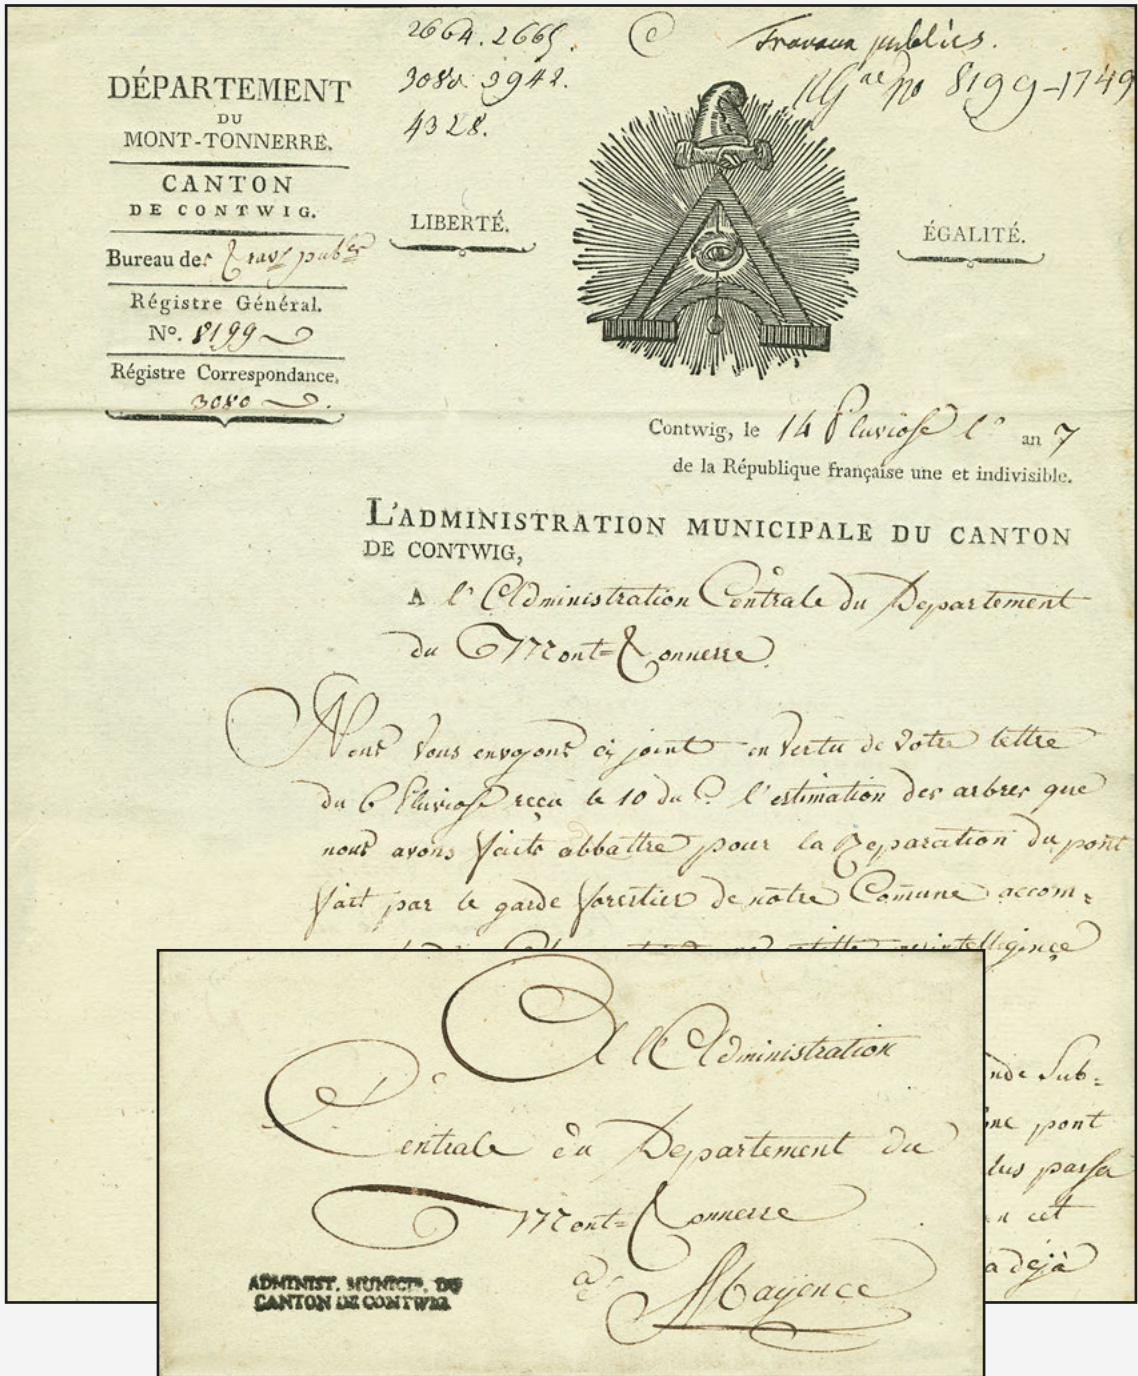 2664. 2665.
3080. 3942.
4328.
Travaux publics.
no 8199-1749
DÉPARTEMENT
DU
MONT-TONNERRE.
CANTON
DE CONTWIG.
Bureau des Trav. publ.
Régistre Général.
N°. 8199
Régistre Correspondance.
3080
LIBERTÉ.
ÉGALITÉ.
Contwig, le 14 Pluviose l' an 7
de la République française une et indivisible.
L'ADMINISTRATION MUNICIPALE DU CANTON
DE CONTWIG,
A l'Administration Centrale du Departement
du Mont=Tonnerre.
Nous vous envoyons ci joint en vertu de votre lettre
du 6 Pluviose reçu le 10 du d. l'estimation des arbres que
nous avons faits abbattre pour la Reparation du pont
fait par le garde forestier de notre Comune accom=
intelligence
nde Sub=
ne pont
lus passa
n cet
a dejà
A l'Administration
Centrale du Departement du
Mont=Tonnerre
à Mayence
ADMINIST. MUNICIP. DU
CANTON DE CONTWIG